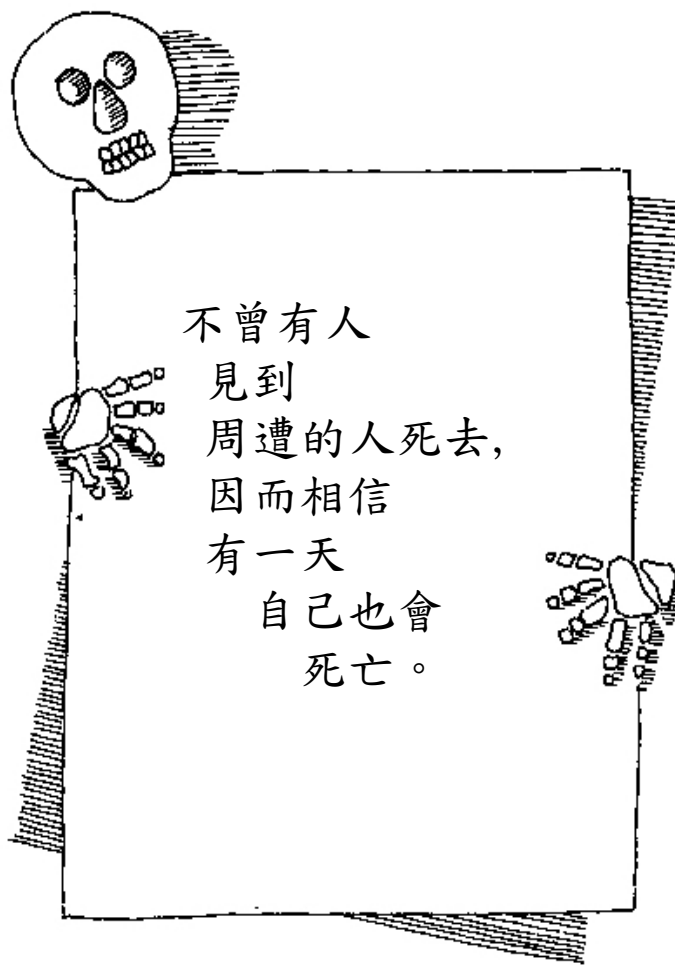 不曾有人
見到
周遭的人死去,
因而相信
有一天
自己也會
死亡。